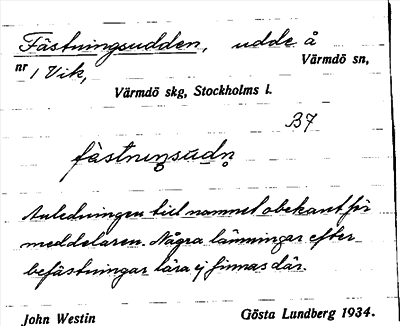 Fästningsudden, udde å
nr 1 Vik, Värmdö sn,
Värmdö skg, Stockholms l.
B7
fästniŋsùdn̥
Anledningen till namnet obekant för
meddelaren. Några lämningar efter
befästningar lära ej finnas där.
John Westin Gösta Lundberg 1934.